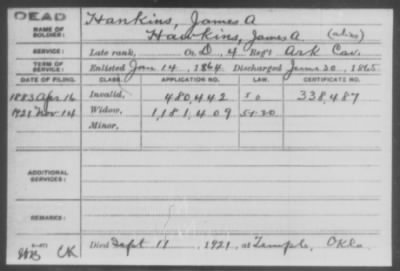 DEAD
NAME OF SOLDIER: Hankins, James A
Hawkins, James A. (alias)
SERVICE: Late rank, Co. D, 4 Reg't Ark Cav.
TERM OF SERVICE: Enlisted Jan 14, 1864. Discharged June 30, 1865
DATE OF FILING. CLASS. APPLICATION NO. LAW. CERTIFICATE NO.
1883 Apr 16 Invalid, 480,442 338,487
1921 Nov 14 Widow, 1,181,409 S4-20
Minor,
ADDITIONAL SERVICES:
REMARKS:
Died Sept 11, 1921, at Temple, Okla.
CK